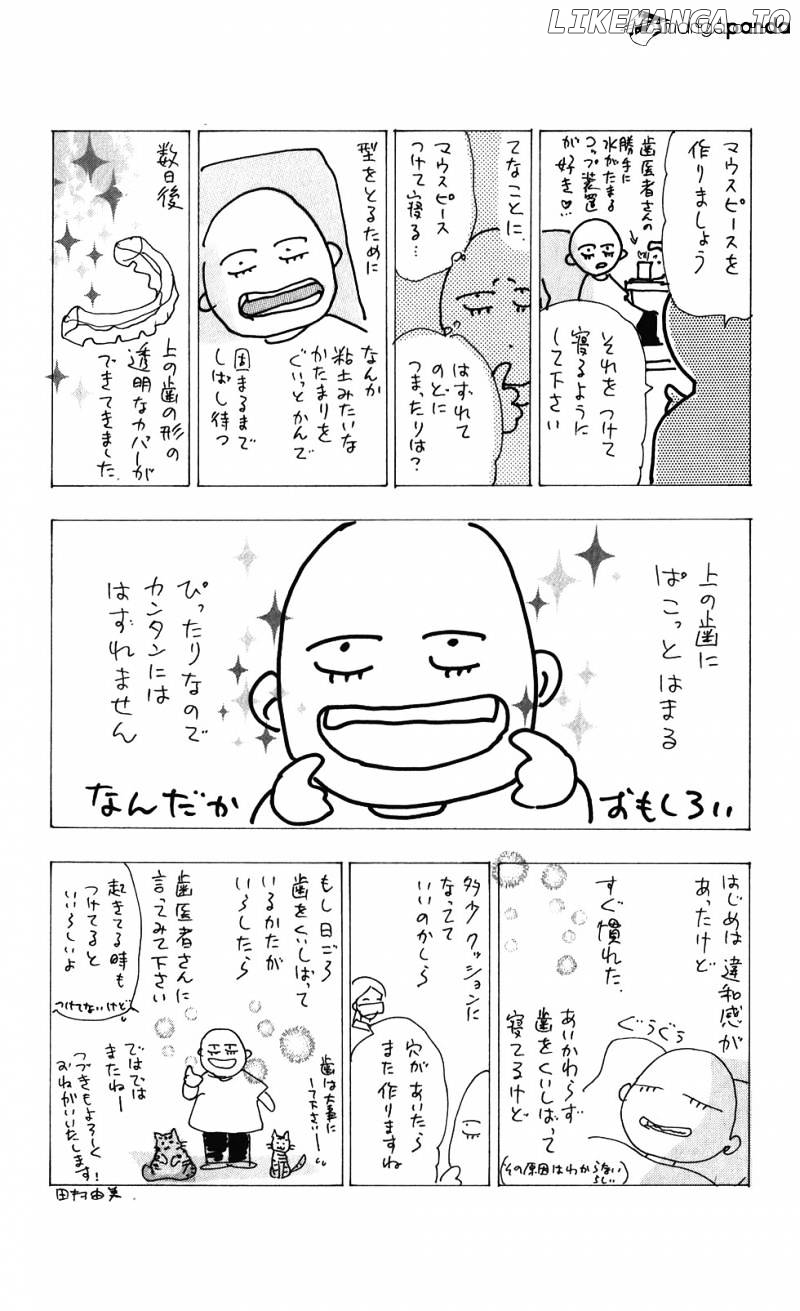 LIKEMANGA.IO
mangapanda
マウスピースを
作りましょう
歯医者さんの
勝手に
水がたまる
コップ装置
が好き♡
それをつけて
寝るように
して下さい
てなことに
マウスピース
つけて寝る…
はずれて
のどに
つまったりは?
型をとるために
なんか
粘土みたいな
かたまりを
ぐいっとかんで
固まるまで
しばし待つ
数日後
上の歯の形の
透明なカバーが
できてきました
上の歯に
ぱこっとはまる
ぴったりなので
カンタンには
はずれません
なんだか
おもしろい
はじめは違和感が
あったけど
すぐ慣れた
ぐうぐう
あいかわらず
歯をくいしばって
寝てるけど
(その原因はわからない
らしい)
多少クッションに
なってて
いいのかしら
穴があいたら
また作りますね
もし日ごろ
歯をくいしばって
いるかたが
いらしたら
歯医者さんに
言ってみて下さい
起きてる時も
つけてると
いいらしいよ
つけてないけど
歯は大事に
して下さいー
ではでは
またねー
つづきもよろしく
おねがいいたします!
田村由美